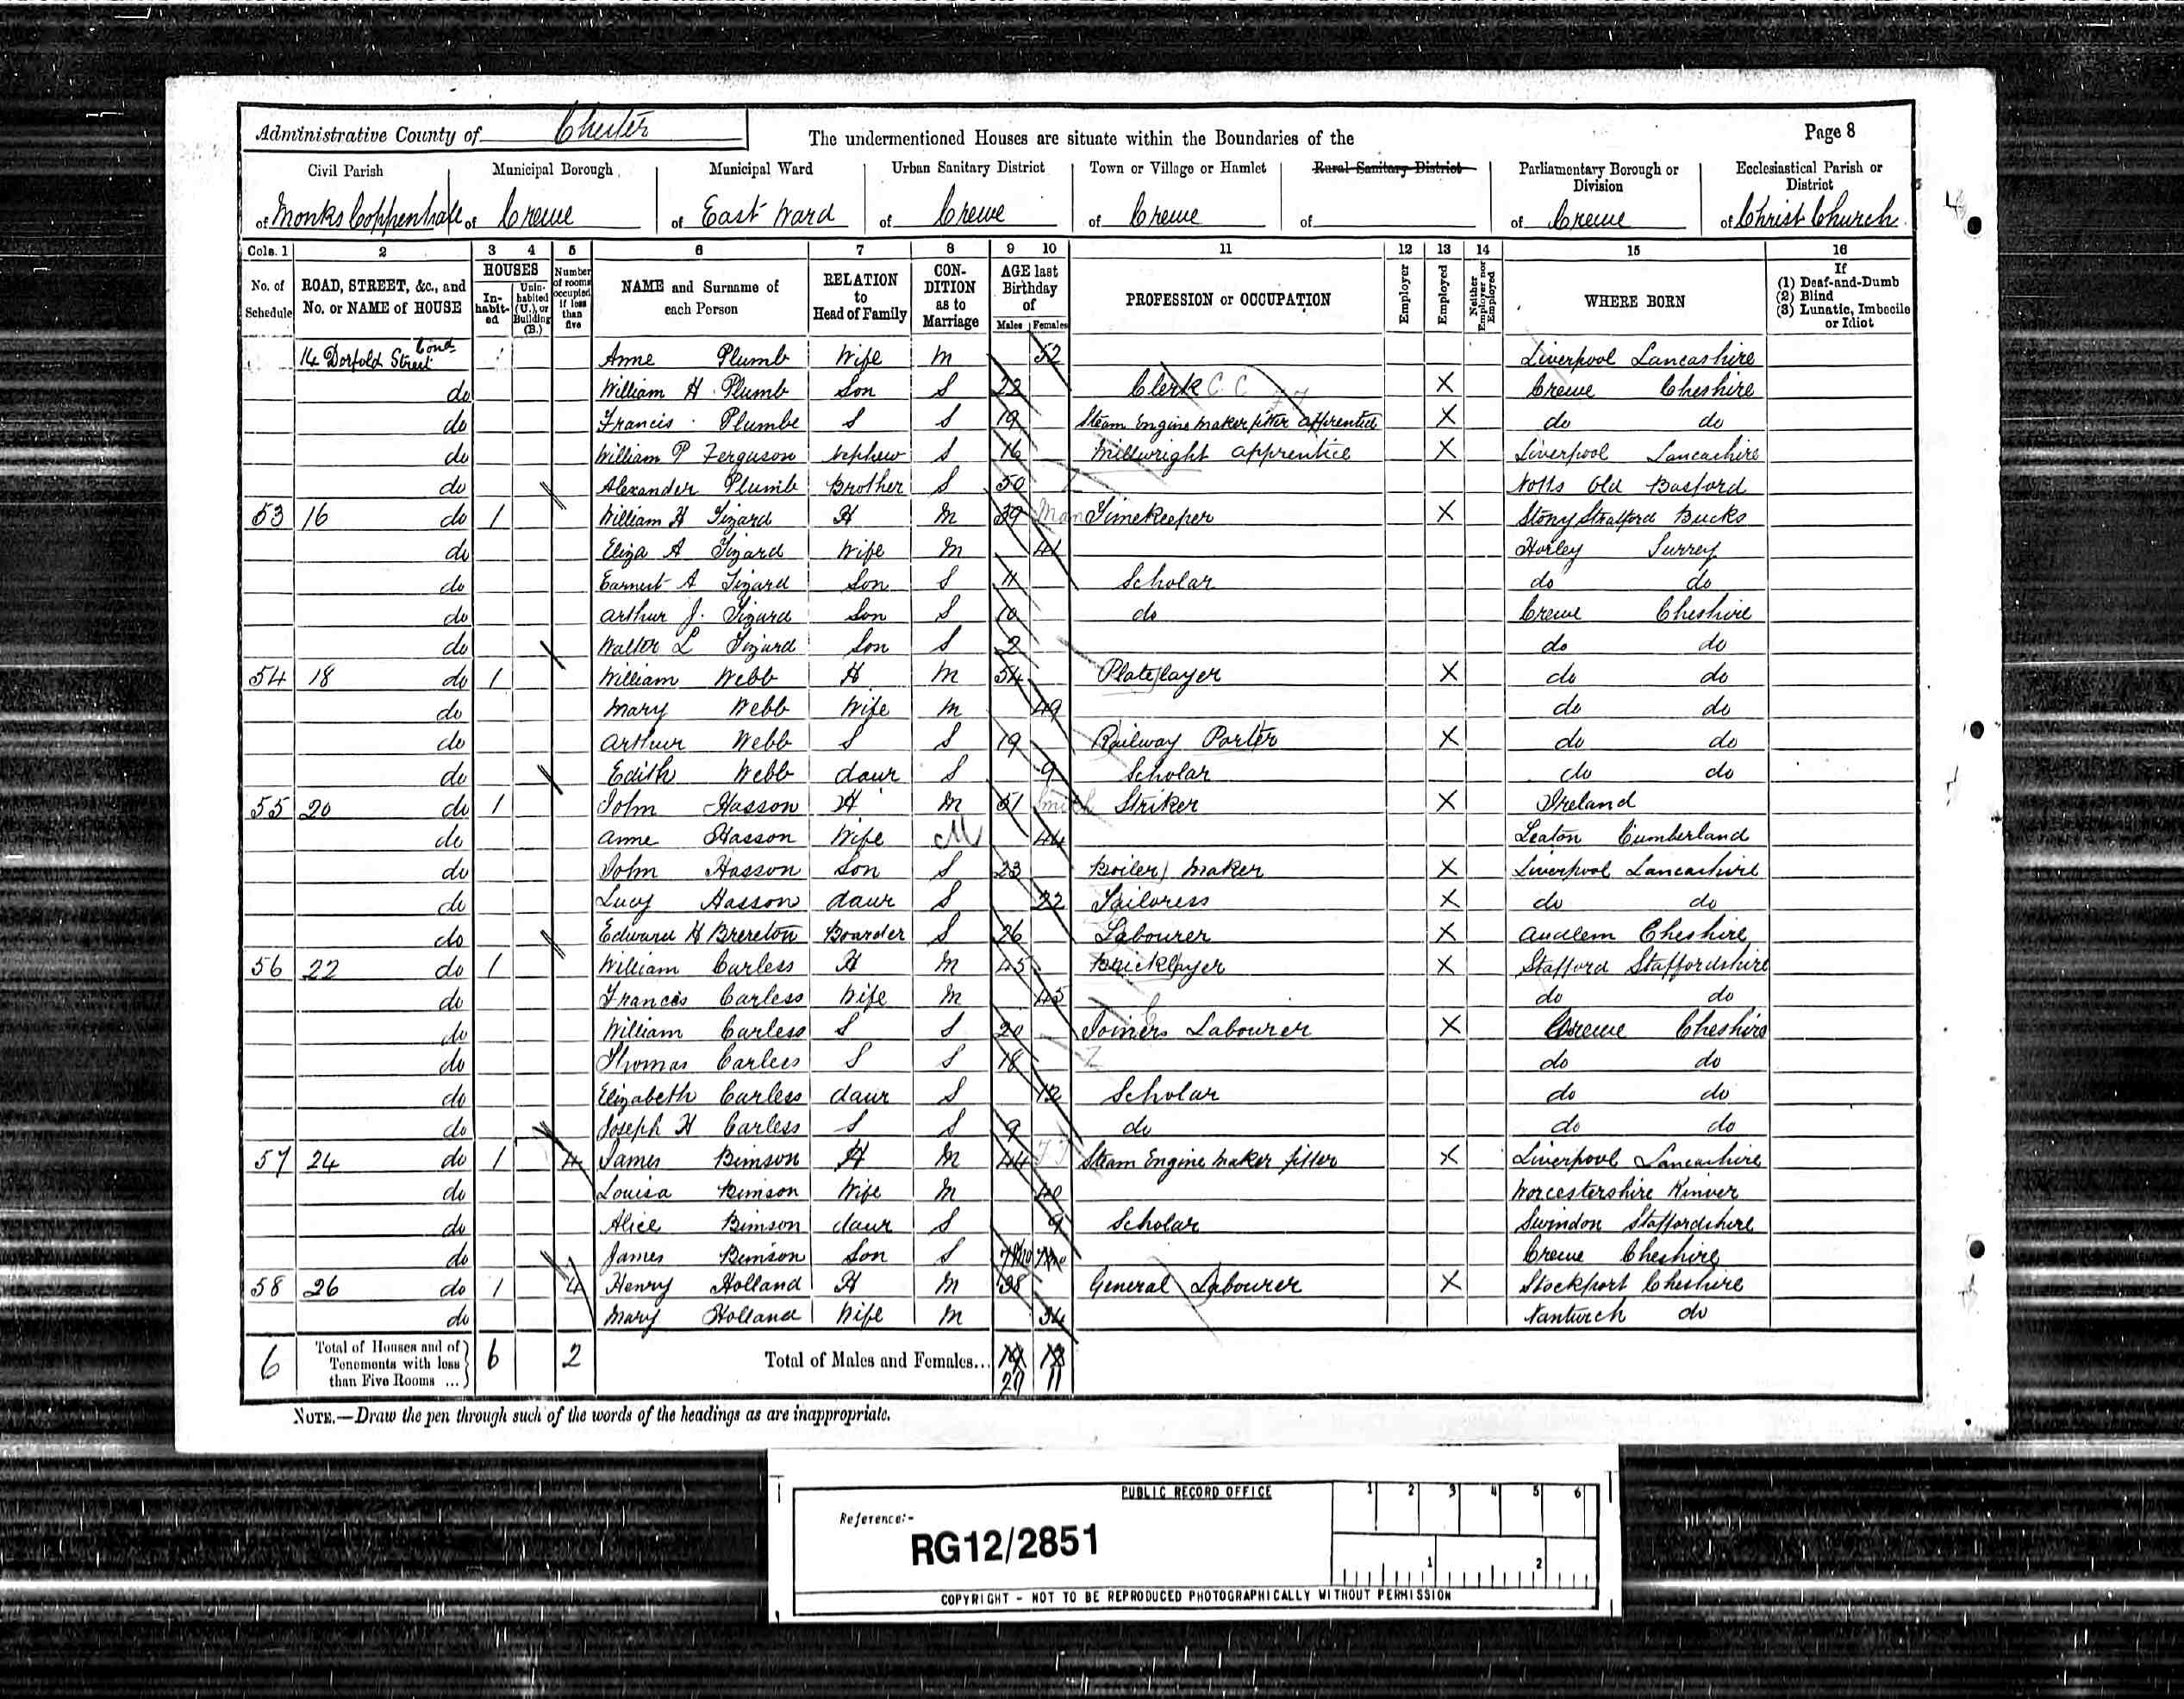 Administrative County of Chester
The undermentioned Houses are situate within the Boundaries of the
Page 8
Civil Parish
of Monks Coppenhall
Municipal Borough
of Crewe
Municipal Ward
of East Ward
Urban Sanitary District
of Crewe
Town or Village or Hamlet
of Crewe
Rural Sanitary District
of
Parliamentary Borough or Division
of Crewe
Ecclesiastical Parish or District
of Christ Church
Cols. 1 2 3 4 5 6 7 8 9 10 11 12 13 14 15 16
No. of Schedule
ROAD, STREET, &c., and No. or NAME of HOUSE
HOUSES
In-habit-ed
Unin-habited (U.), or Building (B.)
Number of rooms occupied if less than five
NAME and Surname of each Person
RELATION to Head of Family
CON-DITION as to Marriage
AGE last Birthday of
Males Females
PROFESSION or OCCUPATION
Employer
Employed
Neither Employer nor Employed
WHERE BORN
If
(1) Deaf-and-Dumb
(2) Blind
(3) Lunatic, Imbecile or Idiot
14 Dorfold Street Cond Anne Plumb Wife M 52 Liverpool Lancashire
do William H Plumb Son S 22 Clerk C C X Crewe Cheshire
do Francis Plumbe S S 19 Steam Engine Maker fitter apprentice X do do
do William P Ferguson Nephew S 16 Millwright apprentice X Liverpool Lancashire
do Alexander Plumb Brother S 50 Notts Old Basford
53 16 do 1 William H Tizard H M 39 Timekeeper X Stony Stratford Bucks
do Eliza A Tizard Wife M 41 Horley Surrey
do Earnest A Tizard Son S 11 Scholar do do
do Arthur J. Tizard Son S 10 do Crewe Cheshire
do Walter L Tizard Son S 2 do do
54 18 do 1 William Webb H M 54 Platelayer X do do
do Mary Webb Wife M 49 do do
do Arthur Webb S S 19 Railway Porter X do do
do Edith Webb daur S 9 Scholar do do
55 20 do 1 John Hasson H M 51 Smith Striker X Ireland
do Anne Hasson Wife M 44 Seaton Cumberland
do John Hasson Son S 23 Boiler Maker X Liverpool Lancashire
do Lucy Hasson daur S 22 Tailoress X do do
do Edward H Brereton Boarder S 26 Labourer X Audlem Cheshire
56 22 do 1 William Carless H M 45 Bricklayer X Stafford Staffordshire
do Francis Carless Wife M 45 do do
do William Carless S S 20 Joiners Labourer X Crewe Cheshire
do Thomas Carless S S 18 do do
do Elizabeth Carless daur S 12 Scholar do do
do Joseph H Carless S S 9 do do do
57 24 do 1 4 James Bimson H M 44 Steam Engine Maker fitter X Liverpool Lancashire
do Louisa Bimson Wife M 40 Worcestershire Kinver
do Alice Bimson daur S 9 Scholar Swindon Staffordshire
do James Bimson Son S Crewe Cheshire
58 26 do 1 4 Henry Holland H M 38 General Labourer X Stockport Cheshire
do Mary Holland Wife M 34 Nantwich do
6 Total of Houses and of Tenements with less than Five Rooms ... 6 2 Total of Males and Females... 19 12
20 11
NOTE.—Draw the pen through such of the words of the headings as are inappropriate.
PUBLIC RECORD OFFICE
1 2 3 4 5 6
Reference:-
RG12/2851
1 2
COPYRIGHT - NOT TO BE REPRODUCED PHOTOGRAPHICALLY WITHOUT PERMISSION